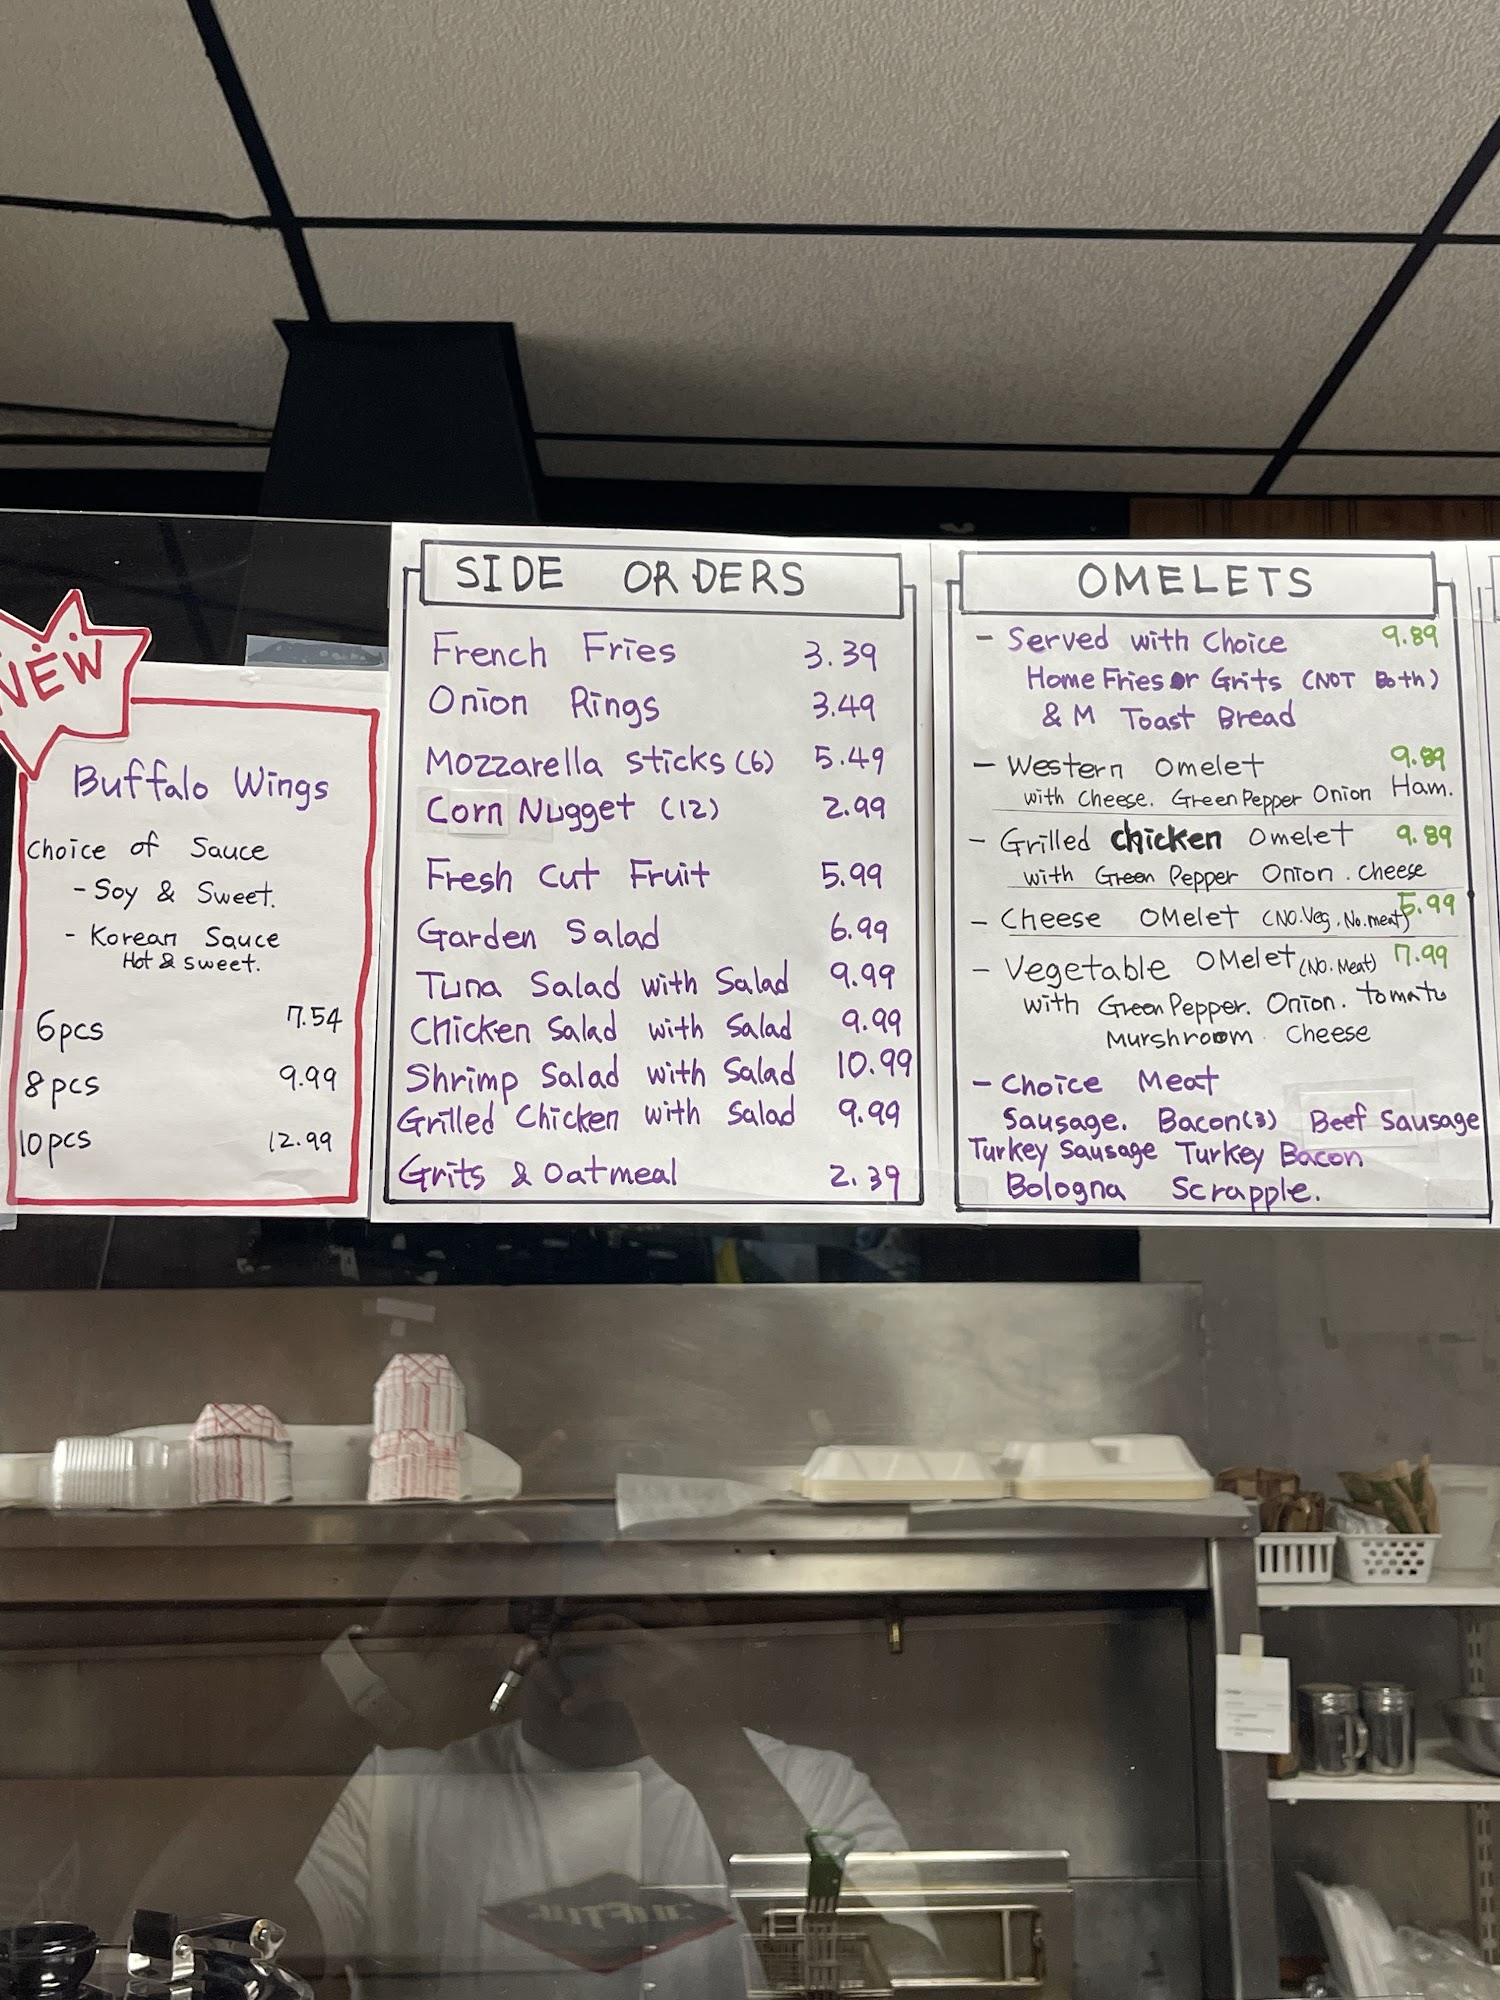 NEW
Buffalo Wings
Choice of Sauce
- Soy & Sweet.
- Korean Sauce
Hot & sweet.
6pcs 7.54
8pcs 9.99
10pcs 12.99
SIDE ORDERS
French Fries 3.39
Onion Rings 3.49
Mozzarella sticks (6) 5.49
Corn Nugget (12) 2.99
Fresh Cut Fruit 5.99
Garden Salad 6.99
Tuna Salad with Salad 9.99
Chicken Salad with Salad 9.99
Shrimp Salad with Salad 10.99
Grilled Chicken with Salad 9.99
Grits & Oatmeal 2.39
OMELETS
- Served with Choice 9.89
Home Fries or Grits (NOT Both)
& M Toast Bread
- Western Omelet 9.89
with Cheese. Green Pepper Onion Ham.
- Grilled chicken Omelet 9.89
with Green Pepper Onion. cheese
- Cheese OMelet (NO.Veg. No.meat) 5.99
- Vegetable OMelet (NO. Meat) 7.99
with Green Pepper. Onion. tomato
Murshroom. Cheese
- Choice Meat
Sausage. Bacon(3) Beef Sausage
Turkey Sausage Turkey Bacon
Bologna Scrapple.